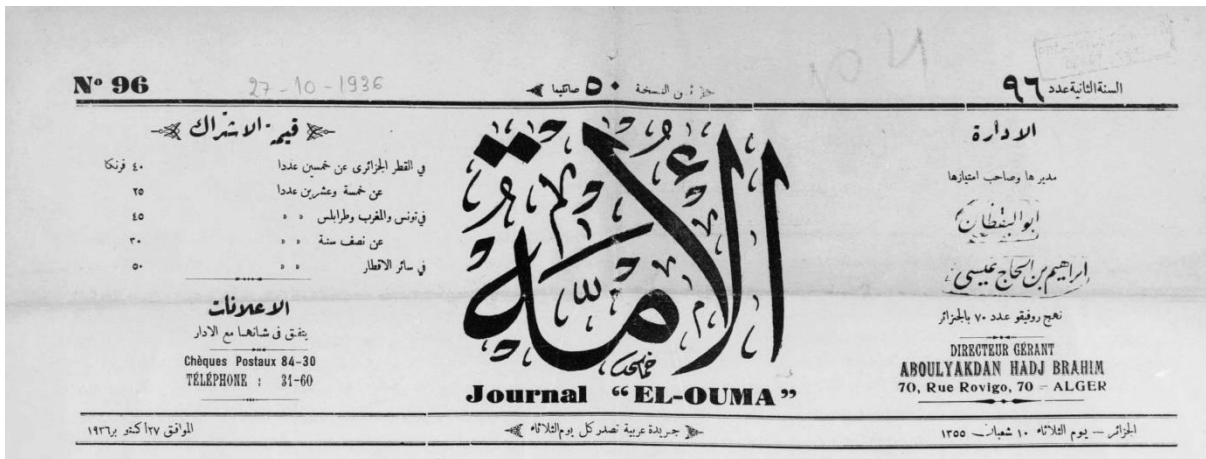 السنة الثانية عدد ٩٦
ثمن النسخة ٥٠ صانتيما
27-10-1936
Nº 96
الادارة
مديرها وصاحب امتيازها
ابو اليقظان
ابراهيم بن الحاج عيسى
نهج روفيقو عدد ٧٠ بالجزائر
DIRECTEUR GÉRANT
ABOULYAKDAN HADJ BRAHIM
70, Rue Rovigo, 70 - ALGER
الأمة
Journal “EL-OUMA”
قيمة الاشتراك
في القطر الجزائرى عن خمسين عددا ٤٠ فرنكا
عن خمسة وعشرين عددا ٢٥
في تونس والمغرب وطرابلس » » ٤٥
عن نصف سنة » » ٣٠
في سائر الاقطار » » ٥٠
الاعلانات
يتفق في شانها مع الادار
Chèques Postaux 84-30
TÉLÉPHONE : 31-60
الجزائر — يوم الثلاثاء ١٠ شعبان ١٣٥٥
جريدة عربية تصدر كل يوم الثلاثاء
الموافق ٢٧ اكتوبر ١٩٣٦